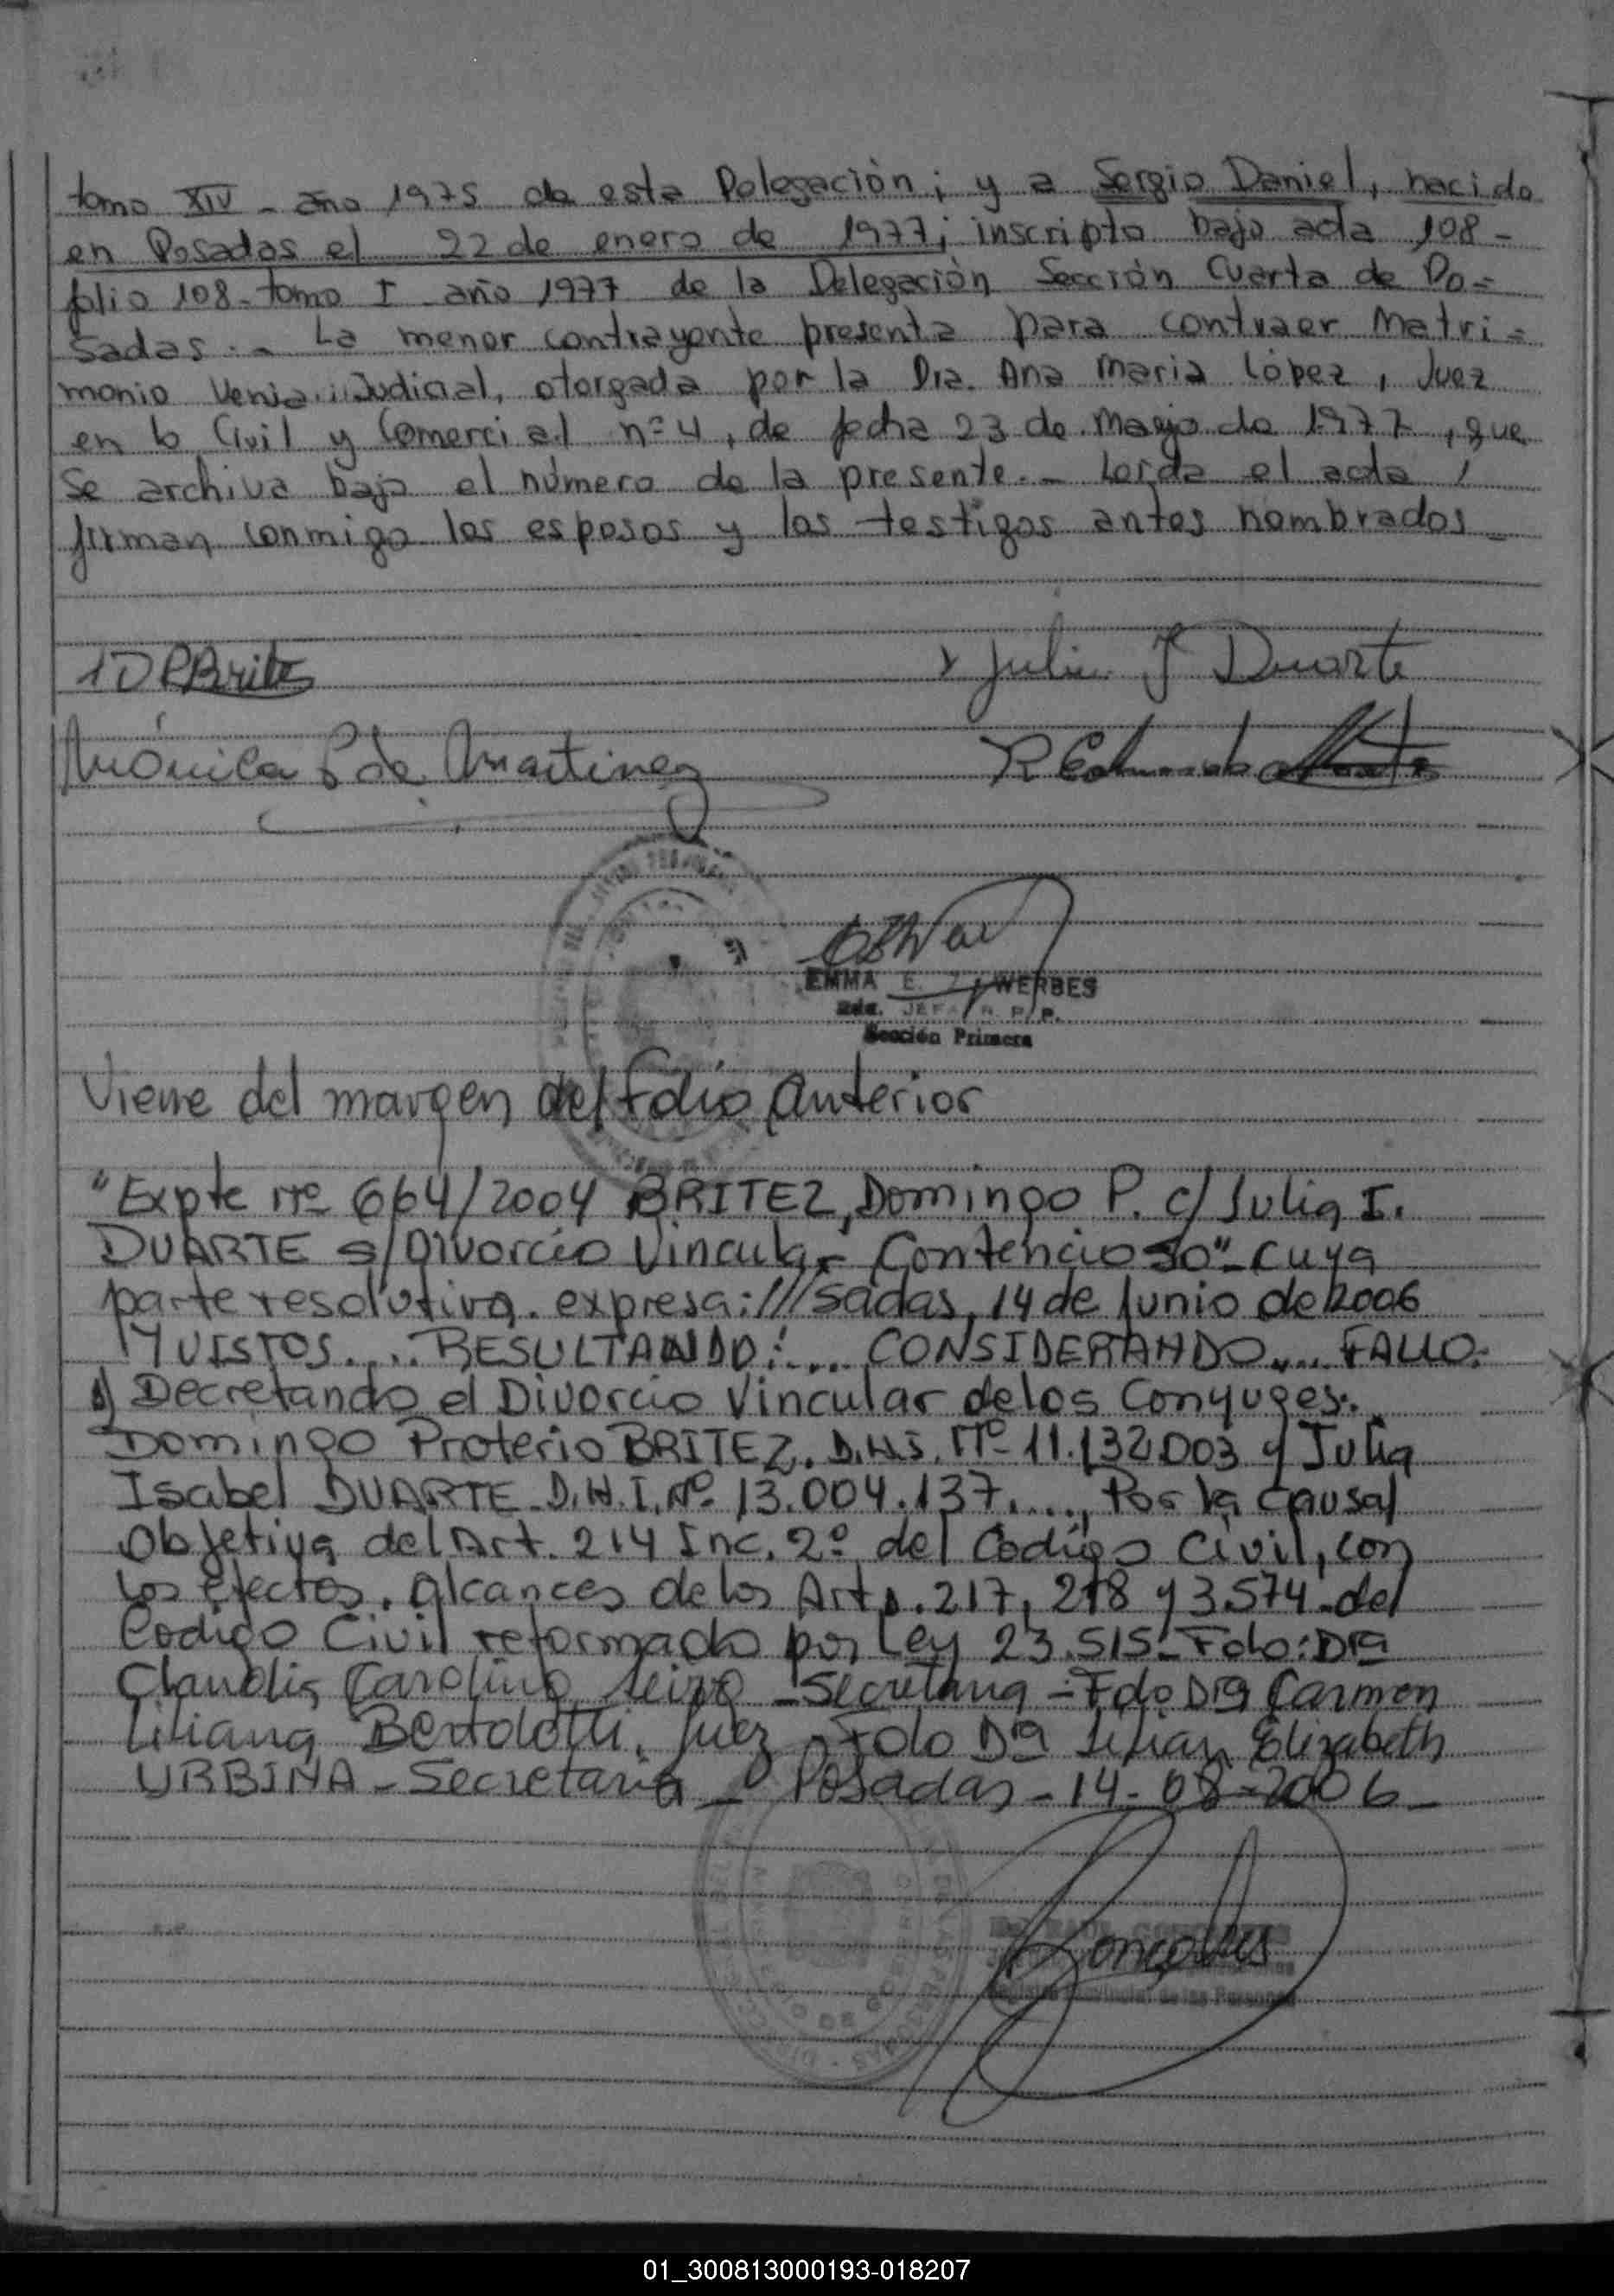 tomo XIV - año 1975 de esta Delegación; y a Sergio Daniel, nacido
en Posadas el 22 de enero de 1977; inscripto bajo acta 108-
folio 108- tomo I año 1977 de la Delegación Sección Cuarta de Po=
sadas.- La menor contrayente presenta para contraer Matri=
monio Venia Judicial, otorgada por la Dra. Ana Maria López, Juez
en lo Civil y Comercial n° 4, de fecha 23 de Mayo de 1977, que
se archiva bajo el número de la presente.- Leida el acta /
firman conmigo los esposos y los testigos antes nombrados-
Julia I Duarte
Mónica de Martinez
EMMA E. WERBES
JEFA R. P. P.
Sección Primera
Viene del margen del folio anterior
"Expte N° 664/2004 BRITEZ, Domingo P. c/ Julia I.
DUARTE s/ Divorcio Vincular Contencioso"- cuya
parte resolutiva. expresa:///sadas, 14 de Junio de 2006
Y VISTOS.... RESULTANDO:.... CONSIDERANDO.... FALLO:
1) Decretando el Divorcio Vincular de los Conyuges.
Domingo Proterio BRITEZ. D.N.I. N° 11.132003 y Julia
Isabel DUARTE- D.N.I. N° 13.004.137...., Por la Causal
Objetiva del Art. 214 Inc. 2° del Codigo Civil, con
los efectos, alcances de los Arts. 217, 218 y 3.574- del
Codigo Civil reformado por Ley 23.515- Fdo: Dra
Claudia Carolina - Secretaria - Fdo Dra Carmen
Liliana Bertolotti, Juez - Fdo Dra Lilian Elizabeth
URBINA - Secretaria - Posadas - 14-08-2006-
01_300813000193-018207